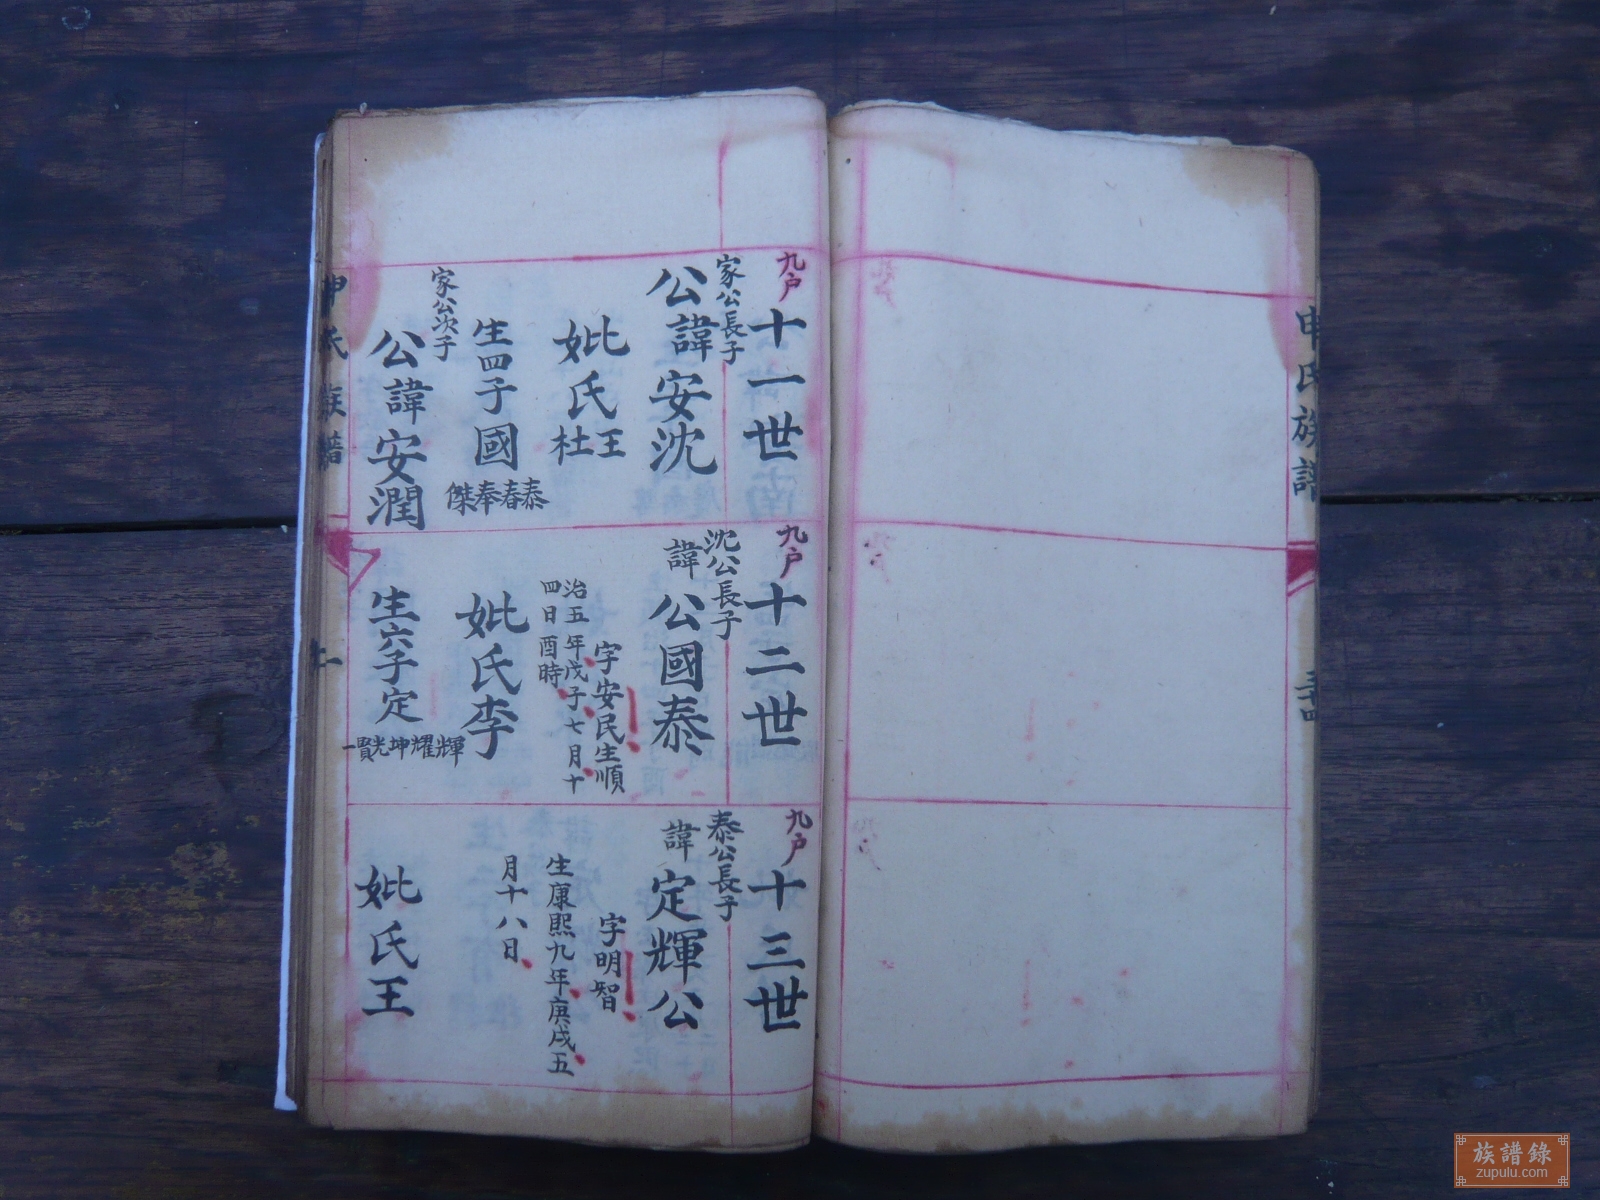 申氏族譜
九户
十一世
家公長子
公諱安沈
妣氏王杜
生四子國泰春奉傑
家公次子
公諱安潤
九户
十二世
沈公長子
諱公國泰
字安民生順
治五年戊子七月十
四日酉時
妣氏李
生六子定輝耀坤光貫一
九户
十三世
泰公長子
諱定輝公
字明智
生康熙九年庚戌五
月十八日
妣氏王
申氏族譜
族譜錄
zupulu.com